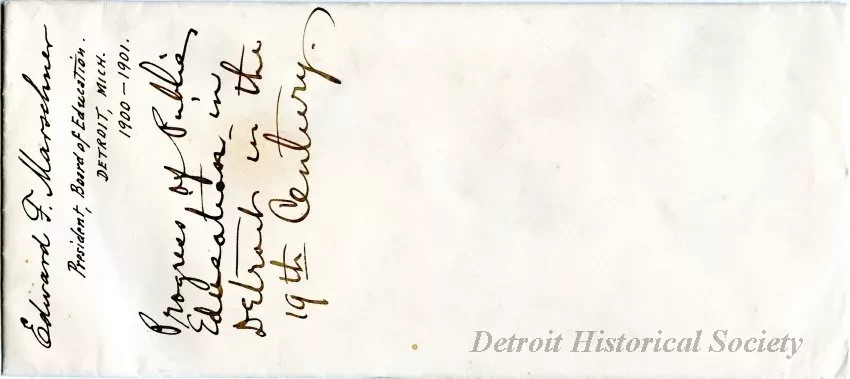 Edward F. Marschner
President, Board of Education.
DETROIT, MICH.
1900-1901.
Progress of Public
Education in
Detroit in the
19th Century.
Detroit Historical Society